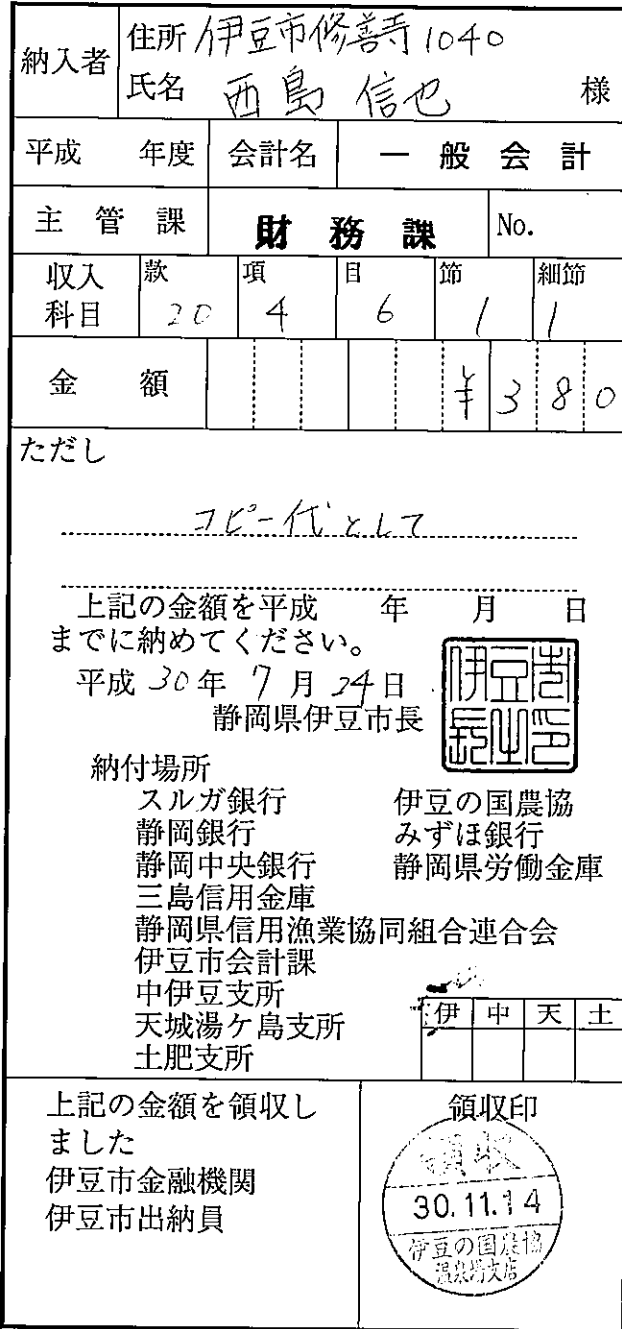 納入者
住所 伊豆市修善寺1040
氏名 西島 信也 様
平成 年度 会計名 一般会計
主管課 財務課 No.
収入科目 款 20 項 4 目 6 節 1 細節 1
金額 ¥380
ただし
コピー代として
上記の金額を平成 年 月 日
までに納めてください。
平成 30年 7月 24日
静岡県伊豆市長
伊豆市長之印
納付場所
スルガ銀行 伊豆の国農協
静岡銀行 みずほ銀行
静岡中央銀行 静岡県労働金庫
三島信用金庫
静岡県信用漁業協同組合連合会
伊豆市会計課
中伊豆支所
天城湯ケ島支所
土肥支所
伊 中 天 土
上記の金額を領収し
ました
伊豆市金融機関
伊豆市出納員
領収印
領収
30.11.14
伊豆の国農協
温泉場支店